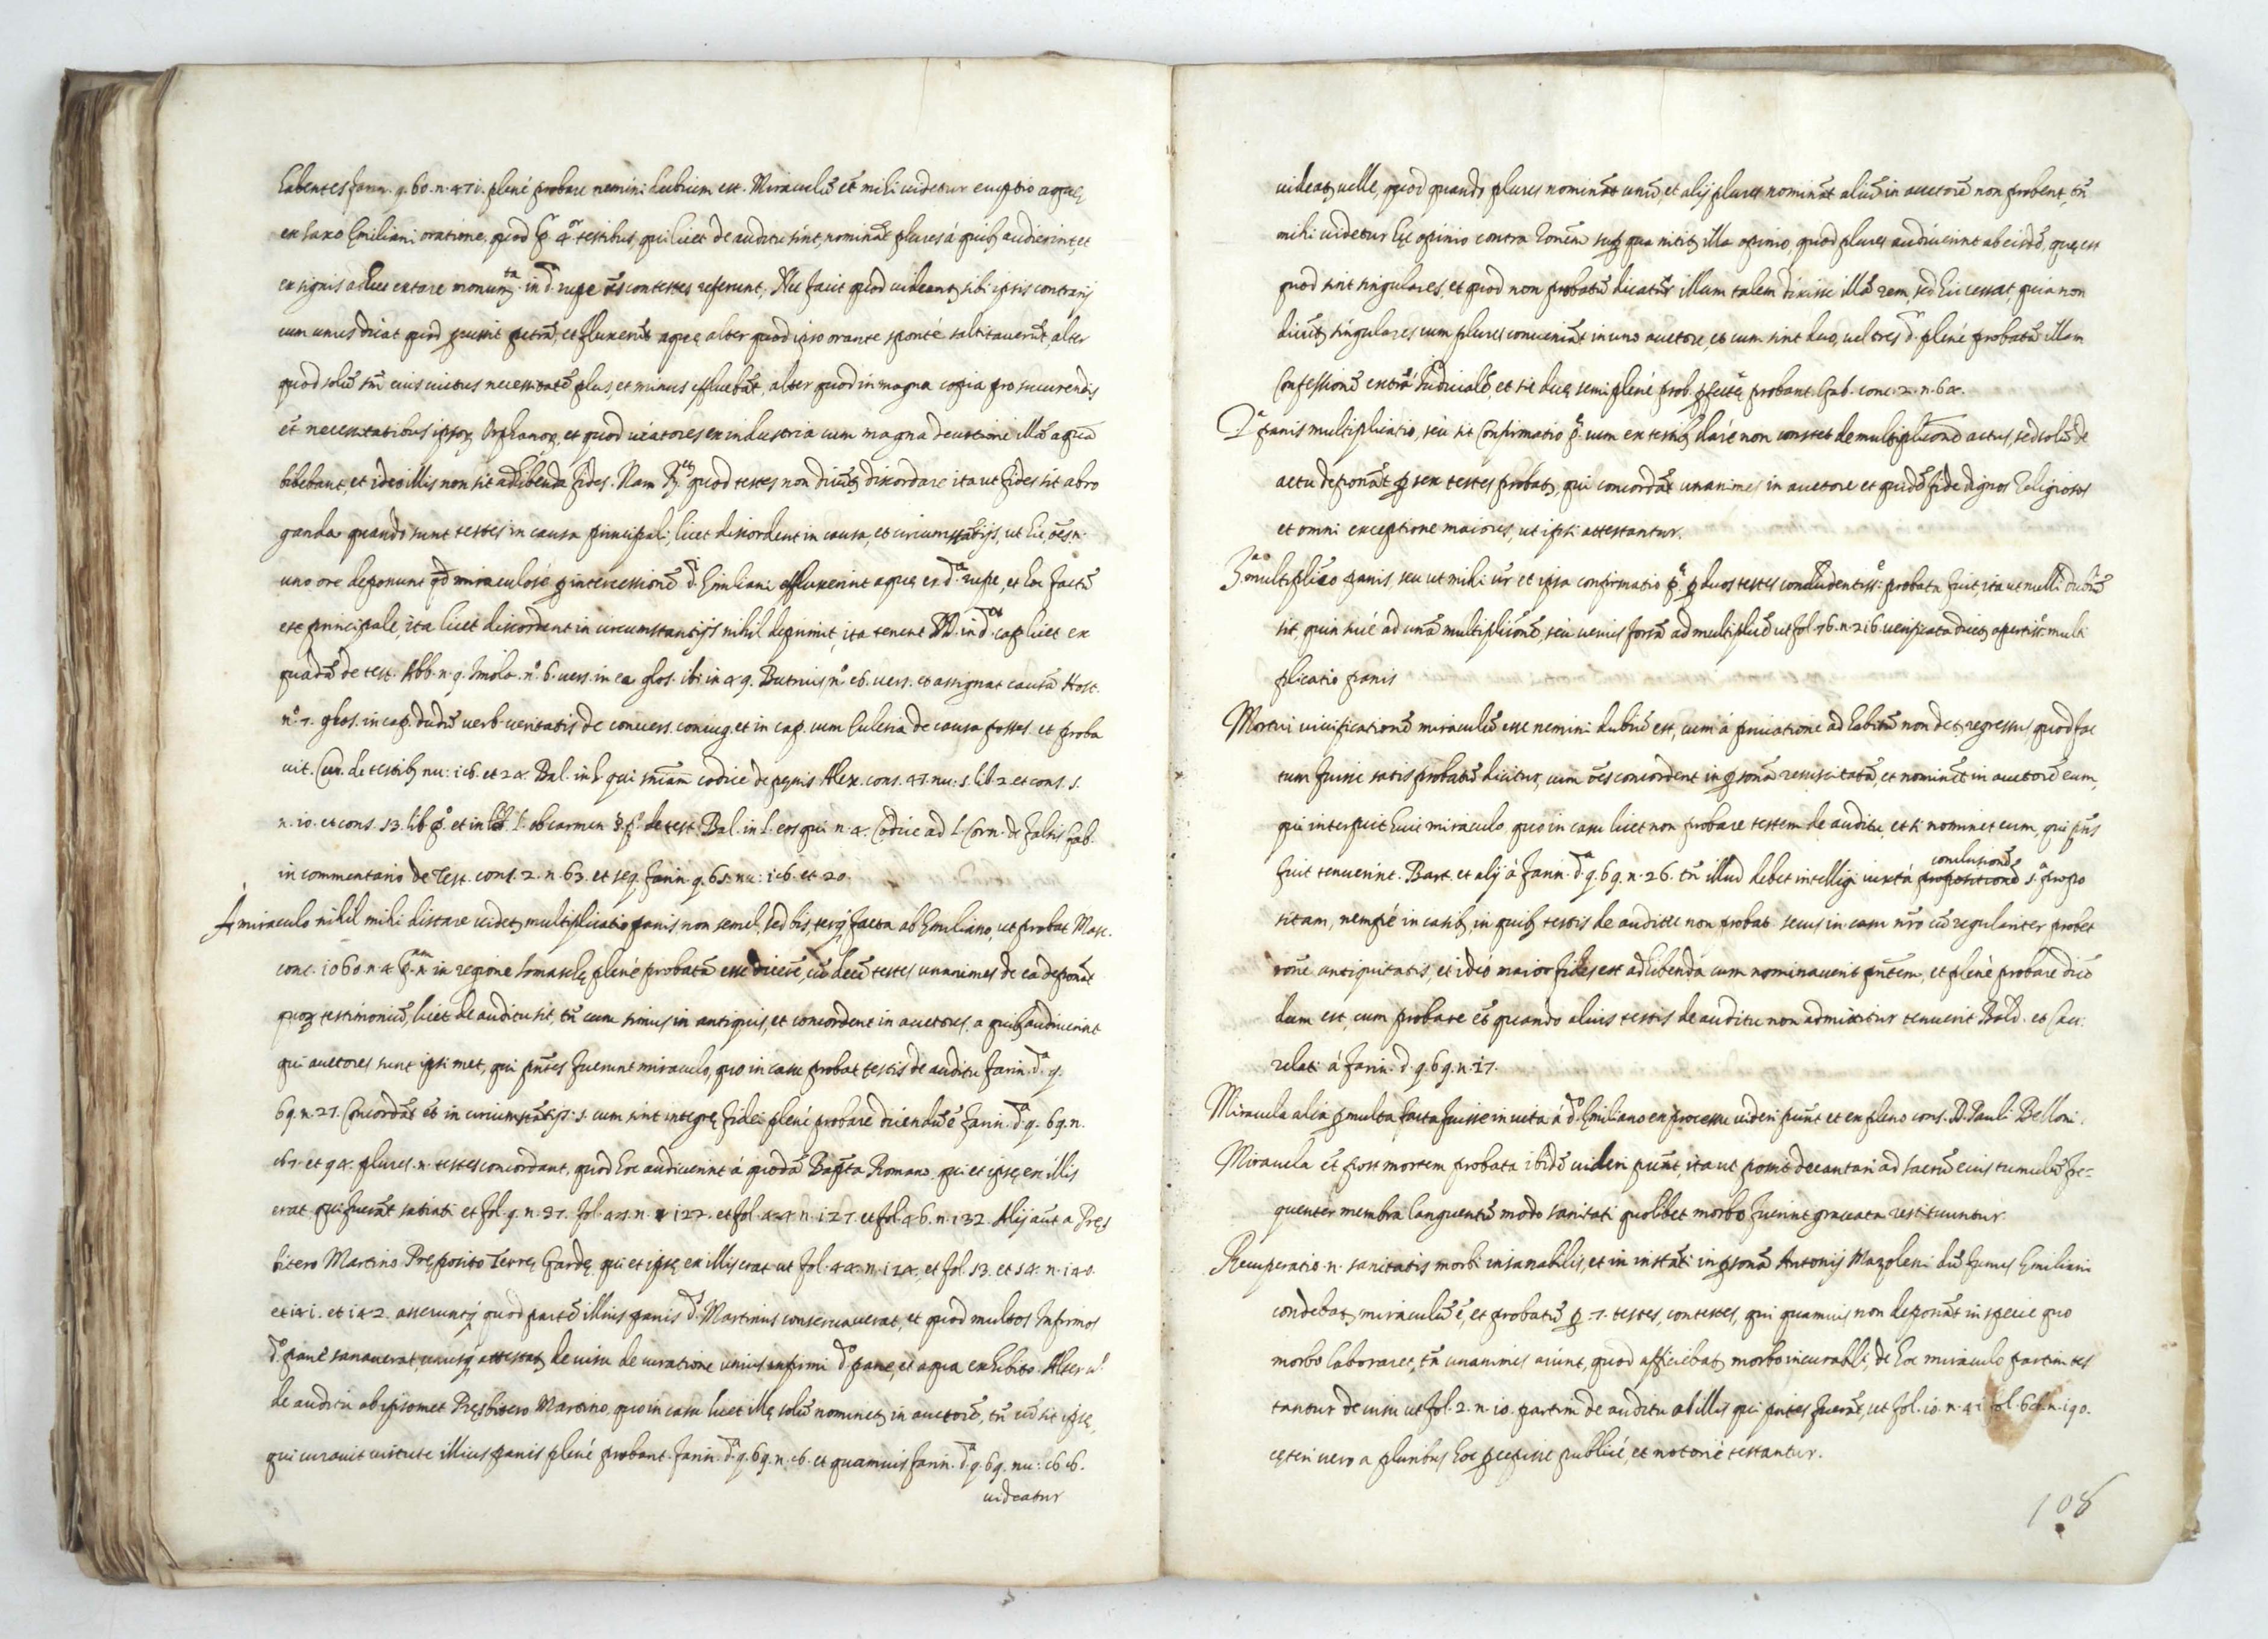 habentes farin. q. 60. n. 471. plené probare nemini dubium est. Miraculũ et mihi videtur eruptio aquę
ex saxo Emiliani oratione, quod p 4.or testibus, qui licet de auditu sint, nominãt plures à quibꝫ audierint, et
ex signis adhuc extare monum.ta in d. rupe oẽs contestes referunt, Nec facit quod videantꝫ sibi ipsis contrarij
cum unus dicat quod petrã, et fluxerũt aquę alter quod ipso orante sponté saltitaverũt, alter
quod solũ sm̃ eius victus necessitatẽ plus, et minus effluebãt, alter quod in magna copia pro succurendis
et̃ necessitatibus ipsoꝝ Orphanoꝝ, et quod viatores ex industria cum magna devotione illã aquã
bibebant, et ideo illis non sit adhibenda fides. Nam quod testes non dicũtꝫ discordare ita ut fides sit abro
ganda quando sunt testes in causa principali, licet discordent in causa, et circumstãtijs, ut hic, oẽs n.
uno ore deponunt qd̃ miraculosé p intercessionẽ d.i Emiliani effluxerint aquę ex d.a rupe, et hoc factũ
est principale, ita licet discordent in circumstantijs nihil deprimit, ita tenent DD. in d. cap. licet ex
quadã de test. Abb. n. 9. Imola. n.o 6. vers. in ea glos. ibi in 4 q. Butrius n.o 16. vers. et assignat causã Host.
n.o 7. glos. in cap. dudũ verb. veritatis de convers. coniug. et in cap. cum Ecclesia de causa posses. et proba
vit. de testibꝫ nu: 16. et 24. Bal. in l. qui sñiam codice de pęnis Alex. cons. 47. nu: 5. lib. 2. et cons. 5.
n. 10. et cons. 53. lib. p.o et in l. ob carmen §. p.o de test. Bal. in l. eos qui n. 4. Codice ad l. Corn. de falsis Gab.
in commentario de Test. conc. 2. n. 63. et seq. farin. q. 65. nu: 16. et 20.
A miraculo nihil mihi distare videtꝫ multiplicatio panis non semel, sed bis, terqꝫ facta ab Emiliano, ut probat Masc.
conc. 1060. n. 4 in regione Somaschę plené probatã esse dicerẽ, cũ decẽ testes unanimes de ea deponãt
quoꝝ testimoniũ, licet de auditu sit, tñ cum simus in antiquis, et concordent in auctores, a quibꝫ audiverint
qui auctores sunt ipsi met, qui pñtes fuerunt miraculo, quo in casu probat testis de auditu farin. d.a q.
69. n. 27. Concordãt et̃ in circumstãtijs: s. cum sint integrę fidei plené probare dicendũ ẽ farin. d.a q. 69. n.
67. et 94. plures. n. testes concordant, quod hoc audiverint á quodã Bap̃ta Romano, qui et ipse ex illis
erat, qui fuerãt satiati et fol. 9. n. 37. fol. 42. n. 127. et fol. 44 n. 127. et fol. 46. n. 132. Alij aũt a Pręs
bitero Martino Pręposito Terrę Gardę, qui et ipsę ex illis erat ut fol. 44. n. 124. et fol. 53. et 54. n. 140.
et 141. et 142. asseruntqꝫ quod partẽ illius panis d.s Martinus conservaverat, et quod multos Infirmos
d.o pane sanaverat, unusqꝫ attestatꝫ de visu de curatione unius infirmi d.o pane, et aqua exhibito. Alter v.o
de auditu ab ipsomet Pręsbitero Martino, quo in casu licet illę solũ nominetꝫ in auctorẽ, tñ cũ sit ipsę,
qui curavit virtute illius panis plené probant. farin. d.a q. 69. n. 16. et quamvis farin. d.a q. 69. nu: 66.
videatur
videatꝫ velle, quod quando plures nominãt unũ, et alij plures nominãt aliũ in auctorẽ non probent, tñ
mihi videtur hęc opinio contra rõnem sup qua nititꝫ illa opinio, quod plures audiverint ab eodẽ, quę est
quod sint singulares, et quod non probatũ dicatur illum talem dixisse illã rem, sed hic cessat, quia non
dicũtꝫ singulares cum plures conveniãt in uno auctore, et cum sint duo, vel tres d.r plené probatã illam
Confessionẽ extrà Iudicialẽ, et sic duę semiplené prob. pfectẽ probant. Gab. conc. 2. n. 64.
2.a panis multiplicatio, seù sit Confirmatio p.ę cum ex testibꝫ claré non constet de multiplicõne actus, sed solũ de
actu deponãt p sex testes probatꝫ, qui concordãt unanimes in auctore et quidẽ fide dignos Religiosos
et omni exceptione maiores, ut ipsi attestantur.
3.a multiplicão panis, seu ut mihi vr̃ et ipsa confirmatio p.ę p duos testes concludentiss.e probata fuit, ita ut nulli dubiũ
sit, quin sivé ad unã multiplicõnẽ, seu verius forsã ad multiplicẽ ut fol. 76. n. 216. verificata dicetꝫ apertiss.e multi
plicatio panis
Mortui vivificationẽ miraculũ esse nemini dubiũ est, cum à privatione ad habitũ non detꝫ regressus, quod fac
tum fuisse satis probatũ dicitur, cum oẽs concordent in psonã resuscitatã, et nominẽt in auctorẽ eum,
qui interfuit huic miraculo, quo in casu licet non probare testem de auditu, et si nominet eum, qui pñs
fuit tenuerint. Bart. et alij à farin. d.a q. 69. n. 26. tñ illud debet intelligi iuxtà propositionẽ conclusionẽ s.a propo
sitam, nempé in casibꝫ, in quibꝫ testis de auditu non probat secus in casu nr̃o cũ regulariter probet
rõne antiquitatis, et ideò maior fides est adhibenda cum nominaverit pñtem, et plené probare dicẽ
dum est, cum probare et̃ quando alius testis de auditu non admittitur tenuerit Bald. et
relati à farin. d. q. 69. n. 17.
Miracula alia pmulta facta fuisse in vita á d.o Emiliano ex processu videri pñt et ex pleno cons. D. Pauli Belloni.
Miracula et̃ post mortem probata ibidẽ videri pũnt, ita ut possit decantari ad sacrũ eius tumulũ fre-
quenter membra languentũ modo sanitati quolibet morbo fuerint gravata restituuntur.
Recuperatio. n. sanitatis morbi insanabilis, et in instãti in psonã Antonij Mazoleni dũ funus Emiliani
condebatꝫ miraculũ ẽ, et probatũ p. 7. testes, contestes, qui quamvis non deponãt in specie quo
morbo laboraret, tñ unanimes aiunt, quod afficiebatꝫ morbo incurabili, de hoc miraculo partim tes
tantur de visu ut fol. 2. n. 10. partim de auditu ab illis qui pñtes fuerãt, ut fol. 10. n. 41 fol. 64. n. 190.
cęteri vero a pluribus hoc pcepisse publicé, et notorié testantur.
108